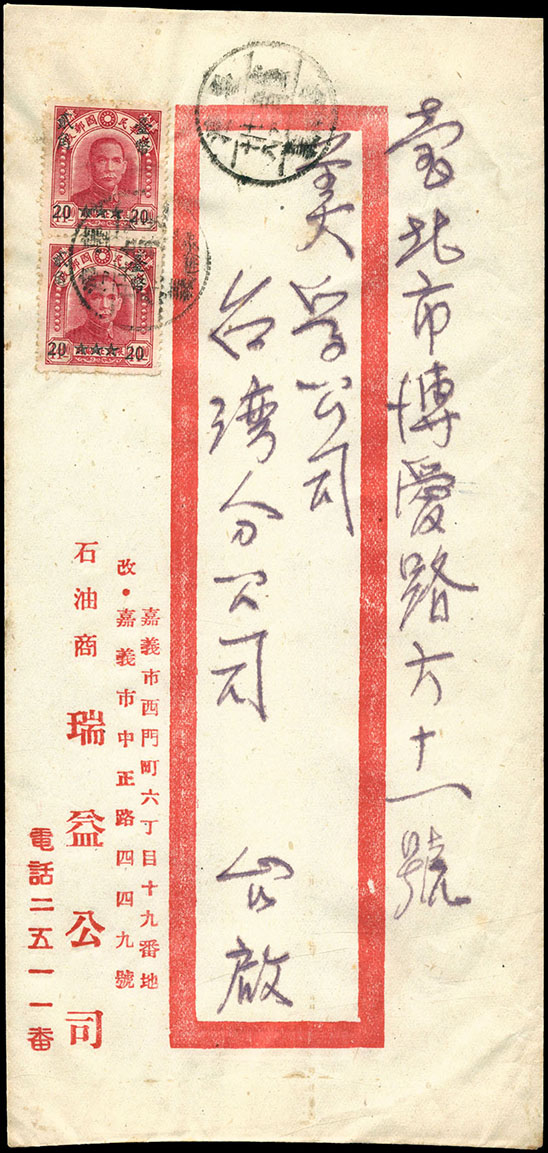 臺北市博愛路六十一號
美孚公司
台灣分公司 台啟
嘉義市西門町六丁目十九番地
改・嘉義市中正路四四九號
石油商 瑞益公司
電話二五一一番
20 ★★★ 20
20 ★★★ 20